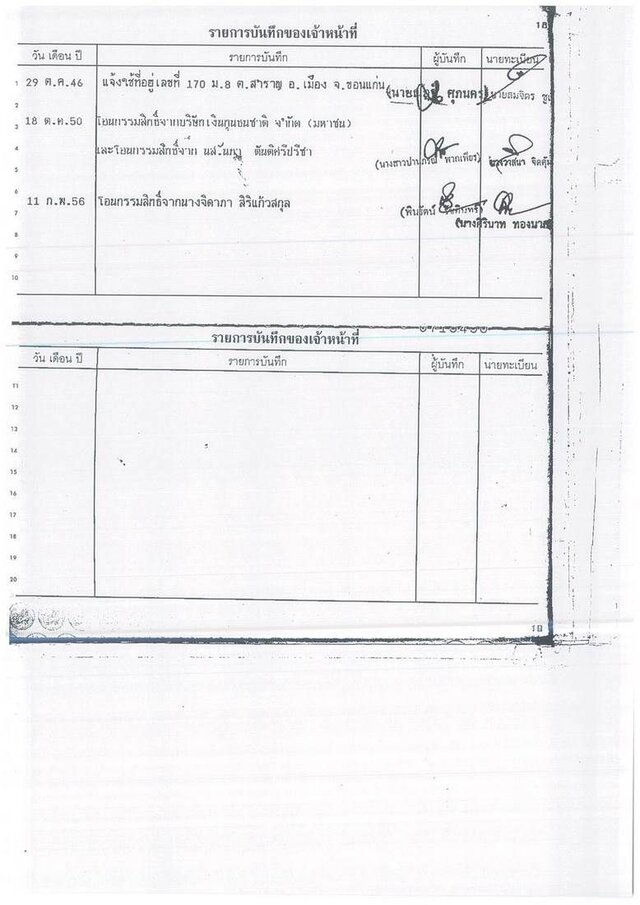 18
รายการบันทึกของเจ้าหน้าที่
วัน เดือน ปี รายการบันทึก ผู้บันทึก นายทะเบียน
1 29 ต.ค.46 แจ้งใช้ที่อยู่เลขที่ 170 ม.8 ต.สาราญ อ.เมือง จ.ขอนแก่น
2 (นาย ศุภนคร) นายสมจิตร
3 18 ต.ค.50 โอนกรรมสิทธิ์จากบริษัทเงินทุนธนชาติ จำกัด (มหาชน)
4
5 และโอนกรรมสิทธิ์จาก ตันติศรีปรีชา (นางสาว พวกเพียร)
6
7 11 ก.พ.56 โอนกรรมสิทธิ์จากนางจิดาภา สิริแก้วสกุล (พินรัตน์
8 (นางศิริบาท
9
10
รายการบันทึกของเจ้าหน้าที่
วัน เดือน ปี รายการบันทึก ผู้บันทึก นายทะเบียน
11
12
13
14
15
16
17
18
19
20